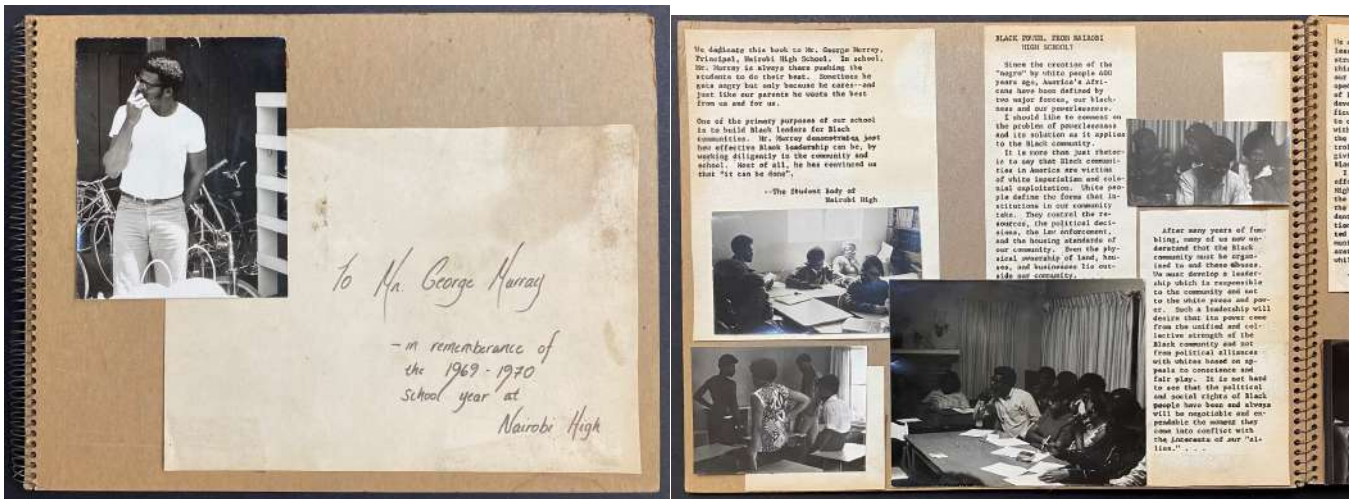 To Mr. George Murray
- in rememberance of
the 1969-1970
school year at
Nairobi High
We dedicate this book to Mr. George Murray,
Principal, Nairobi High School. In school,
Mr. Murray is always there pushing the
students to do their best. Sometimes he
gets angry but only because he cares--and
just like our parents he wants the best
from us and for us.
One of the primary purposes of our school
is to build Black leaders for Black
communities. Mr. Murray demonstrates just
how effective Black leadership can be, by
working diligently in the community and
school. Most of all, he has convinced us
that "it can be done".
--The Student Body of
Nairobi High
BLACK POWER, FROM NAIROBI
HIGH SCHOOL?
Since the creation of the
"negro" by white people 400
years ago, America's Afri-
cans have been defined by
two major forces, our black-
ness and our powerlessness.
I should like to comment on
the problem of powerlessness
and its solution as it applies
to the Black community.
It is more than just rhetor-
ic to say that Black communi-
ties in America are victims
of white imperialism and colo-
nial exploitation. White peo-
ple define the forms that in-
stitutions in our community
take. They control the re-
sources, the political deci-
sions, the law enforcement,
and the housing standards of
our community. Even the phy-
sical ownership of land, hou-
ses, and businesses lie out-
side our community.
After many years of fum-
bling, many of us now un-
derstand that the Black
community must be organ-
ized to end these abuses.
We must develop a leader-
ship which is responsible
to the community and not
to the white press and pow-
er. Such a leadership will
desire that its power come
from the unified and col-
lective strength of the
Black community and not
from political alliances
with whites based on ap-
peals to conscience and
fair play. It is not hard
to see that the political
and social rights of Black
people have been and always
will be negotiable and ex-
pendable the moment they
come into conflict with
the interests of our "al-
lies." . . .